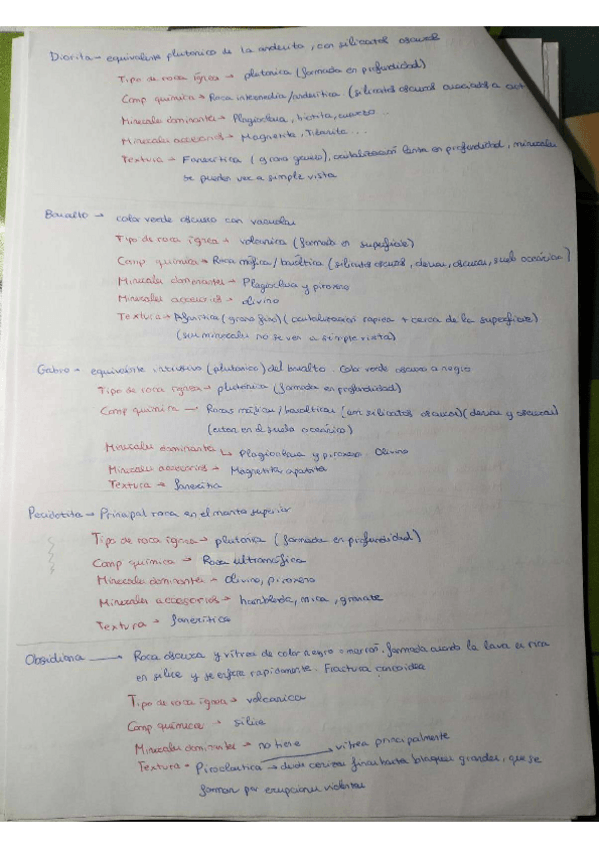 Diorita → equivalente plutonico de la andesita, con silicatos oscuros
Tipo de roca ígnea → plutonica (formada en profundidad)
Comp química → Roca intermedia/andesítica. (silicatos oscuros asociados a
Minerales dominantes → Plagioclasa, biotita, cuarzo...
Minerales accesorios → Magnetita, Titanita...
Textura → Fanerítica (grano grueso), cristalización lenta en profundidad, minerales
se pueden ver a simple vista
Basalto → color verde oscuro con vacuolas
Tipo de roca ígnea → volcanica (formada en superficie)
Comp química → Roca máfica/basáltica (silicatos oscuros, densas, oscuras, suelo oceánico)
Minerales dominantes → Plagioclasa y piroxeno
Minerales accesorios → olivino
Textura → Afanítica (grano fino) (cristalización rapida + cerca de la superficie)
(sus minerales no se ven a simple vista)
Gabro → equivalente intrusivo (plutonico) del basalto. Color verde oscuro a negro
Tipo de roca ígnea → plutónica (formada en profundidad)
Comp química → Rocas máficas/basálticas [con silicatos oscuros] (densas y oscuras)
(estan en el suelo oceánico)
Minerales dominantes → Plagioclasa y piroxeno. Olivino
Minerales accesorios → Magnetita apatita
Textura → fanerítica
Peridotita → Principal roca en el manto superior
Tipo de roca ígnea → plutonica (formada en profundidad)
Comp química → Roca ultramáfica
Minerales dominantes → Olivino, piroxeno
Minerales accesorios → hornblenda, mica, granate
Textura → fanerítica
Obsidiana → Roca oscura y vítrea de color negro o marrón. formada cuando la lava es rica
en sílice y se enfría rapidamente. Fractura concoidea
Tipo de roca ígnea → volcanica
Comp química → silice
Minerales dominantes → no tiene
vítrea principalmente
Textura → Piroclastica → desde cenizas finas hasta bloques grandes, que se
forman por erupciones violentas